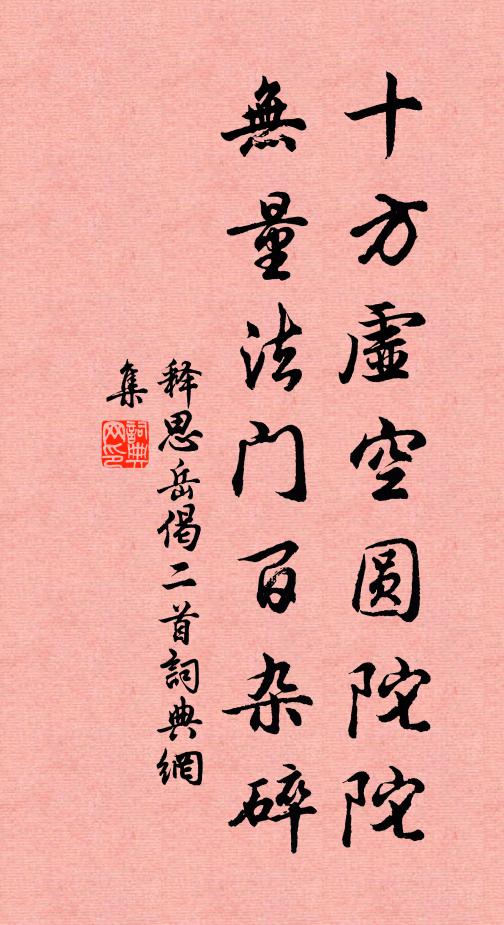 十方虛空圆陀陀
無量法门百杂碎
释思岳偈二首詞典網
集
詞典网印